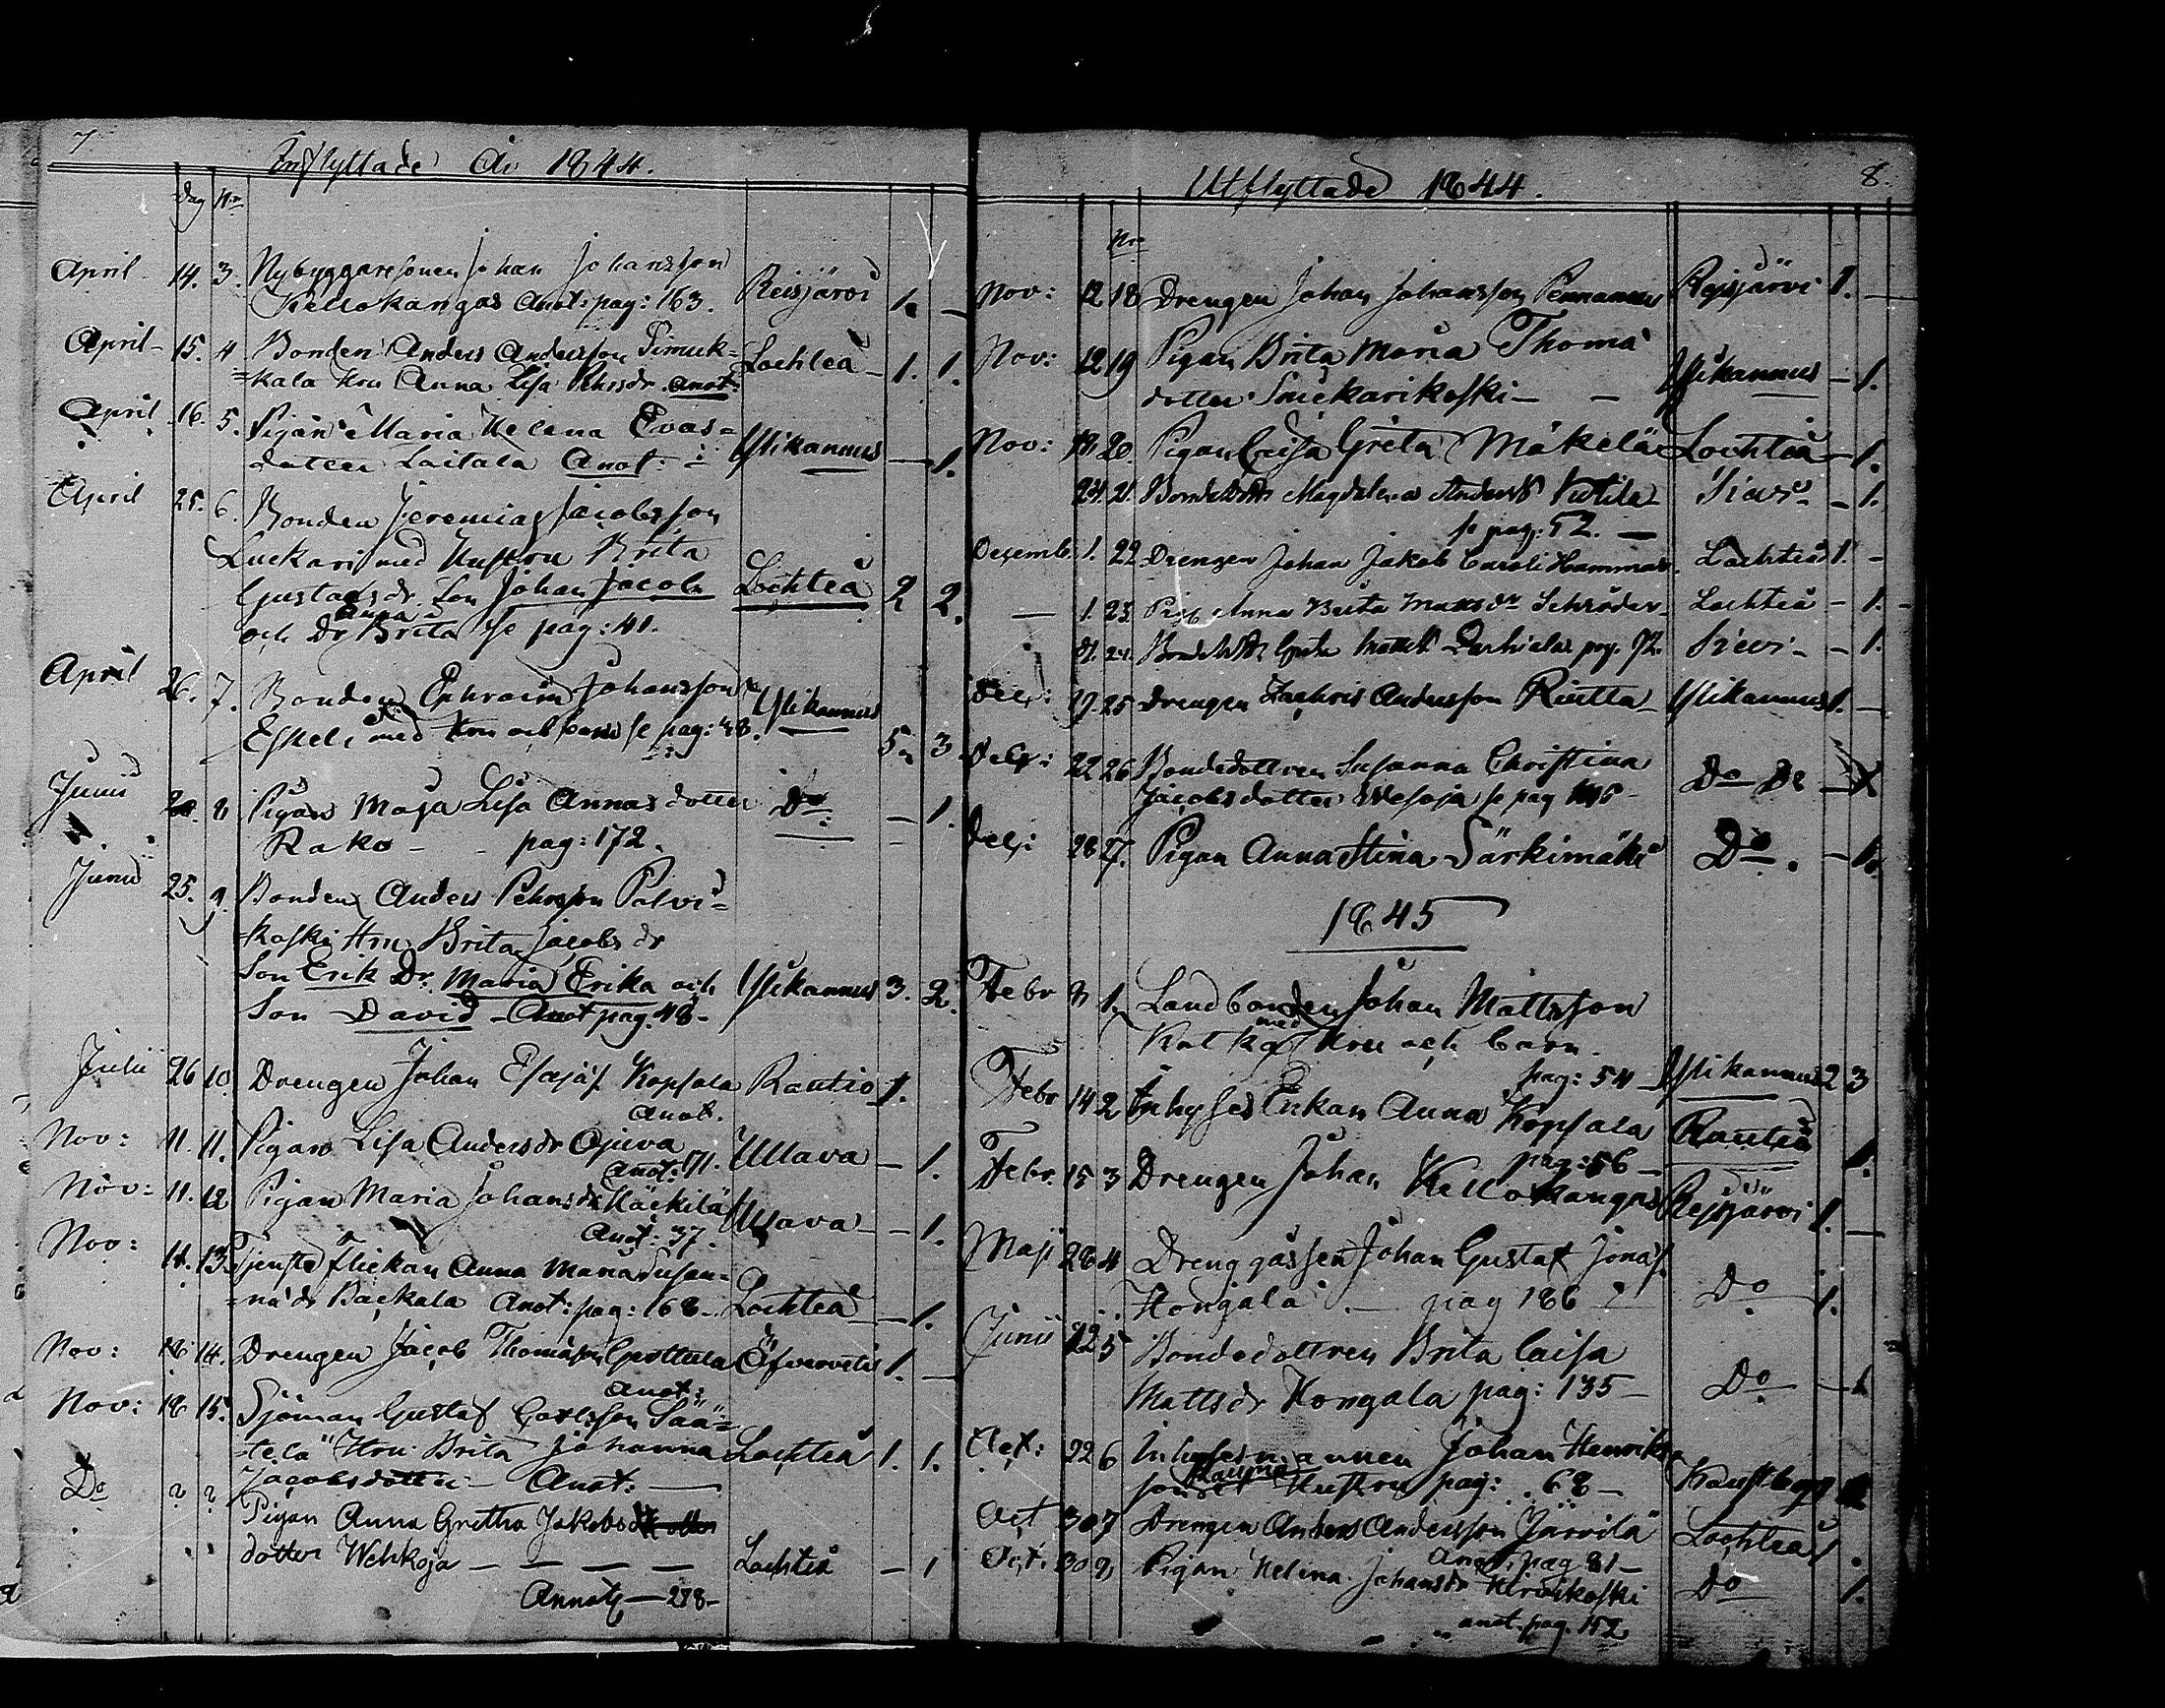 7
Inflyttade År 1844.
Dag Nro
April 14. 3. Nybyggaresonen Johan Johansson
Kellokangas Anot: pag: 163. Reisjärvi 1. –
April 15. 4 Bonden Anders Andersson Simuk=
=kala Hru Anna Lisa Pehrsdr. Anot: Lochteå 1. 1.
April 16. 5. Pigan Maria Helena Evas=
dotter Laitala Anot: Ylikannus – 1.
April 25. 6. Bonden Jeremias Jacobsson
Luckari med Hustru Brita
Gustafsdr. Son Johan Jacob Lochteå 2 2.
och Dr Anna Brita se pag: 41.
April 26. 7. Bonden Ephraim Johansson
Eskeli med Hru och barn se pag: 48. Ylikannus 5. 3
Junii 20. 8 Pigan Maja Lisa Annasdotter Do – 1.
Rako – – pag: 172.
Junii 25. 9. Bonden Anders Pehrsson Palvi=
=koski Hru Brita Jacobsdr
Son Erik Dr. Maria Erika och Ylikannus 3. 2.
Son David – Anot pag. 48 –
Julii 26 10 Drengen Johan Esajas Kopsala Rautio 1.
Anot.
Nov: 11. 11. Pigan Lisa Andersdr Ojuva Ullava – 1.
Anot: 171.
Nov: 11. 12 Pigan Maria Johansdr Käckilä Ullava – 1.
Anot: 37.
Nov: 11. 13. Tjenste Flickan Anna Maria Susan=
=na dr Backala Anot: pag: 168 – Lochteå – 1.
Nov: 18 14. Drengen Jacob Thomasson Öfvervetil 1. –
Anot:
Nov: 18 15. Sjöman Gustaf Carlsson Sää=
=telä Hru Brita Johanna Lochteå 1. 1.
Jacobsdotter – Anot: –
Do ? ? Pigan Anna Gretha Jakobs
dotter Wehkoja – – – – Lochteå – 1
Annot – 278 –
8.
Utflyttade 1844.
Nro
Nov: 12 18 Drengen Johan Johansson Pennanen Rejsjärvi 1. –
Nov: 12 19 Pigan Brita Maria Thoma
dotter Snickarikoski – – Ylikannus – 1.
Nov: 20. Pigan Caisa Greta Mäkelä Lochteå – 1.
24. 21. Magdalena Anders – 1.
se pag: 52. –
Decemb. 1. 22 Drengen Johan Jakob Caroli Hammar. Lochteå 1. –
– 1. 23. Pig. Anna Brita Matts dr Schröder – Lochteå – 1. –
24. Greta pag. 72. Sievi – – 1.
Decr: 19 25 Drengen Zachris Andersson Rintta – Ylikannus 1. –
Decr: 22 26 Bondedottren Susanna Christina
Jacobsdotter Wesoja se pag Do Do –
Decr: 28 27. Pigan Anna Stina Särkimäki Do. – 1.
1845
Febr 1. Landbonden Johan Mattsson
Kotka med Hru och barn.
pag: 54 – Ylikannus 2 3
Febr 14 2 Inhyses Enkan Anna Kopsala Rautio 1.
pag: 56 –
Febr. 15 3 Drengen Johan Kellokangas Rejsjärvi 1. –
Maji 28 4 Drenggåssen Johan Gustaf Jonas.
Hongala . – pag 186 Do 1.
Junii 12 5 Bondedottren Brita Caisa
Mattsdr Hongala pag: 135 – Do – 1
Oct: 22 6 Inhysesmannen Johan Henriks
son Rauma Hustru pag: . 68 – Kaustby
Oct 30 7 Drengen Anders Andersson Järvilä Lochteå 1.
Anot. pag 81 –
Oct. 30 8 Pigan Helena Johansdr Hirvikoski Do 1.
anot. pag. 152